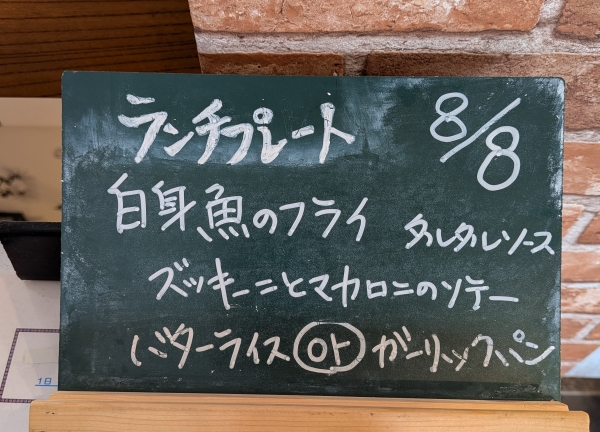 ランチプレート 8/8
白身魚のフライ タルタルソース
ズッキーニとマカロニのソテー
バターライス or ガーリックパン
1日